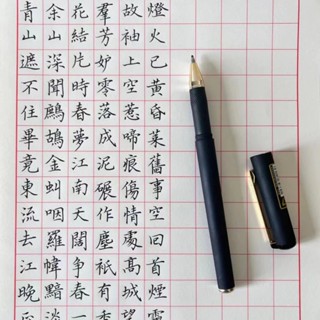 青山遮不住畢竟東流去江晚正
余山深聞鷓鴣金虯咽羅幃黯淡
花結片時春夢江南天闊爭春一
群芳妒零落成泥碾作塵祇有香
故袖上空惹啼痕傷情處高城望
燈火已黃昏菜舊事空回首煙